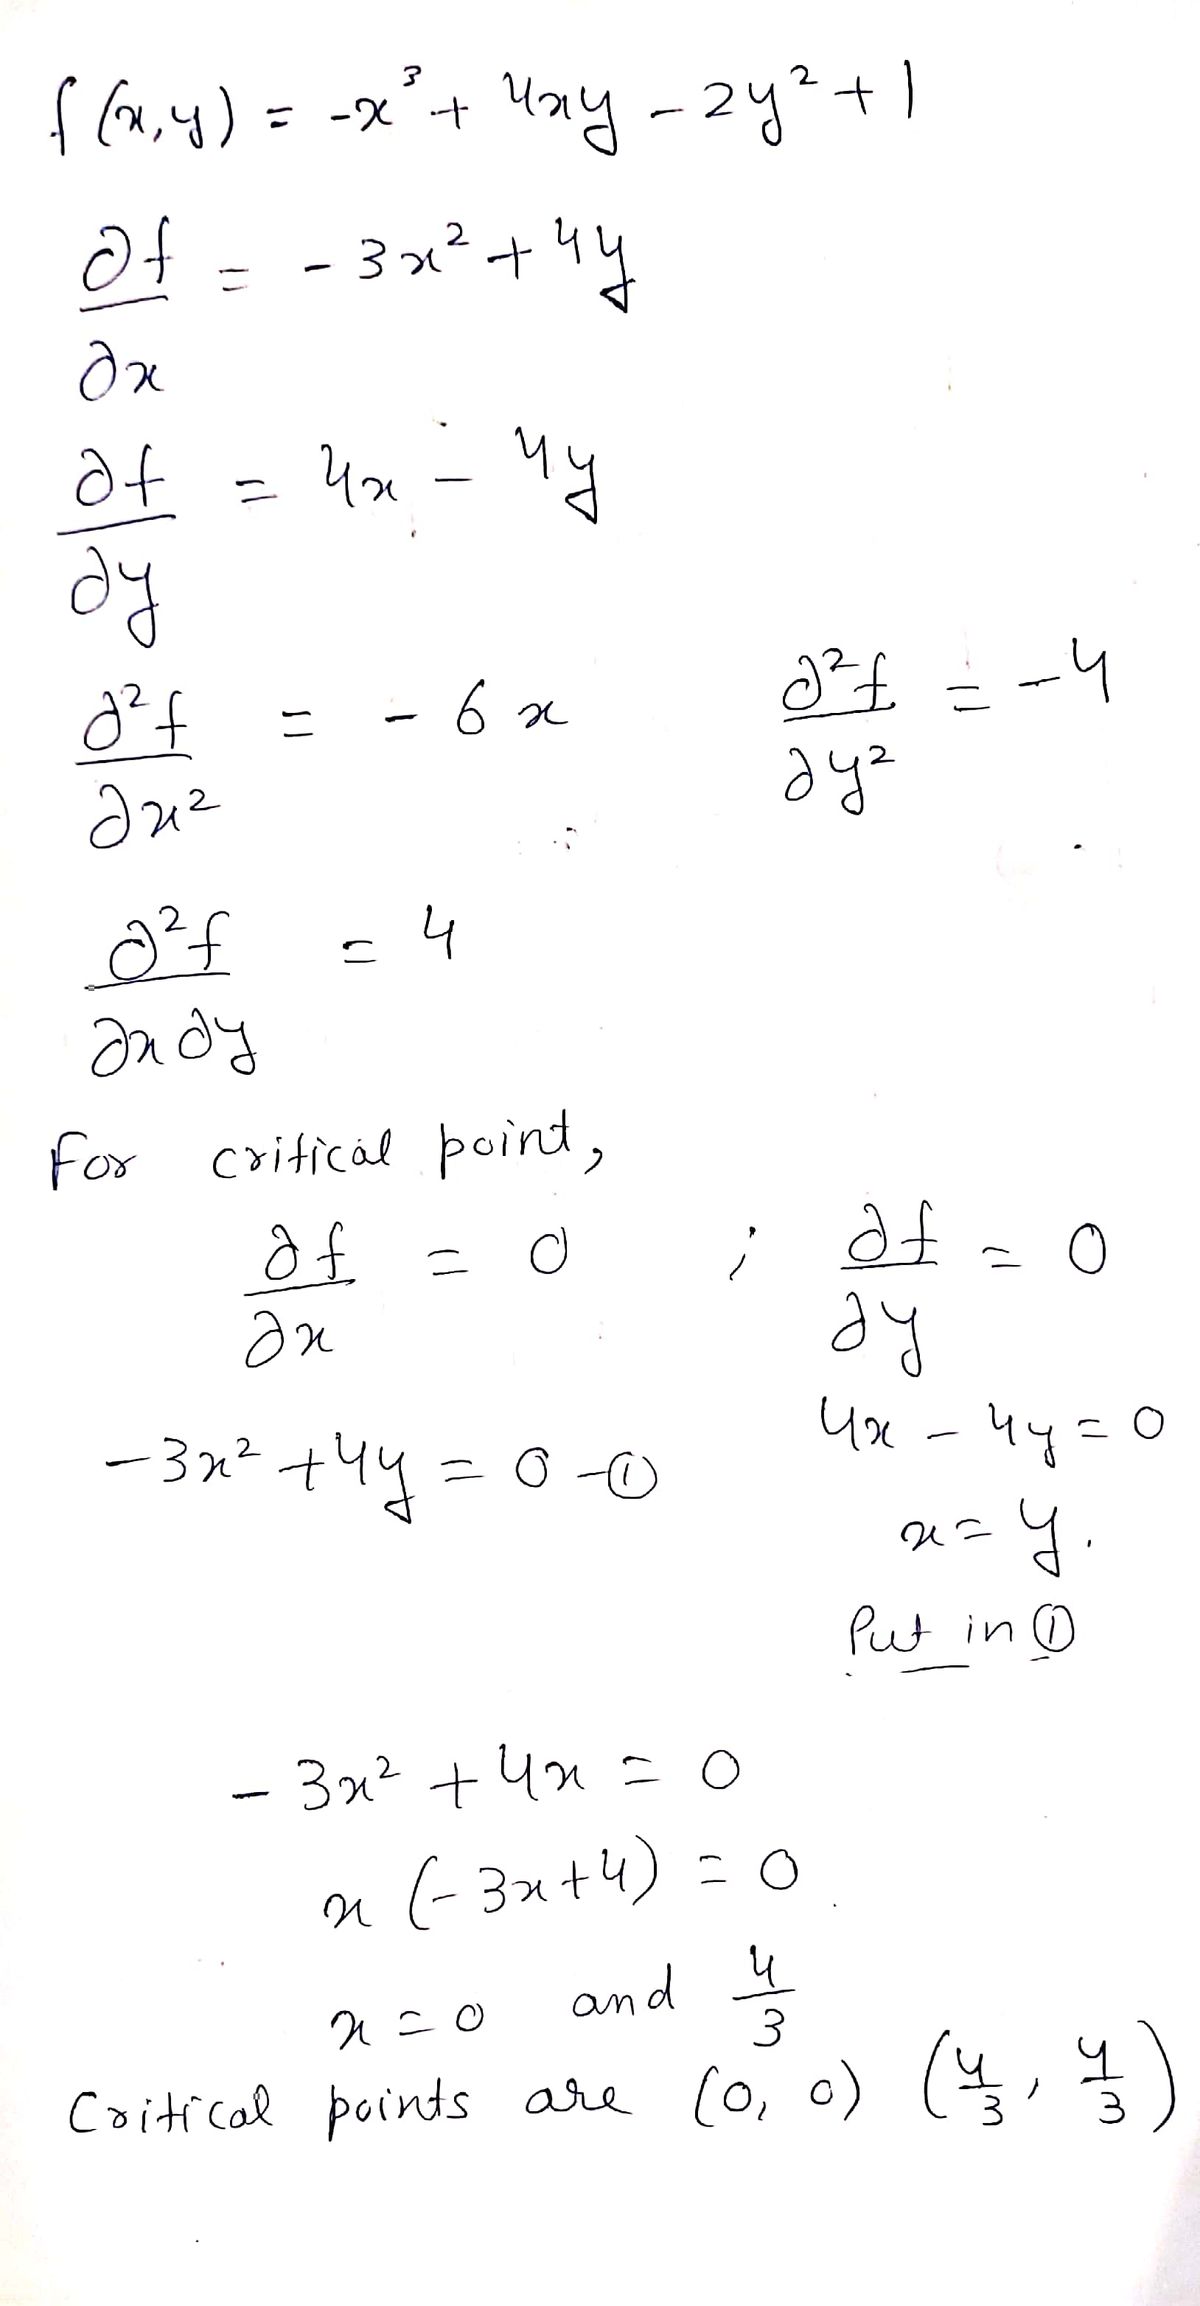 f(x,y) = -x³ + 4xy - 2y² + 1
∂f/∂x = - 3x² + 4y
∂f/∂y = 4x - 4y
∂²f/∂x² = - 6x ∂²f/∂y² = -4
∂²f/∂x∂y = 4
For critical point,
∂f/∂x = 0 ; ∂f/∂y = 0
-3x² + 4y = 0 -① 4x - 4y = 0
x = y.
Put in ①
- 3x² + 4x = 0
x (- 3x + 4) = 0
x = 0 and 4/3
Critical points are (0, 0) (4/3, 4/3)